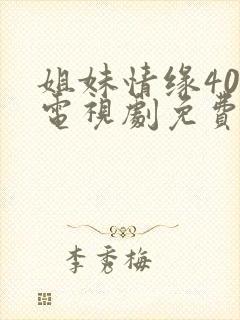 姐妹情缘40
電視劇免費
李秀梅